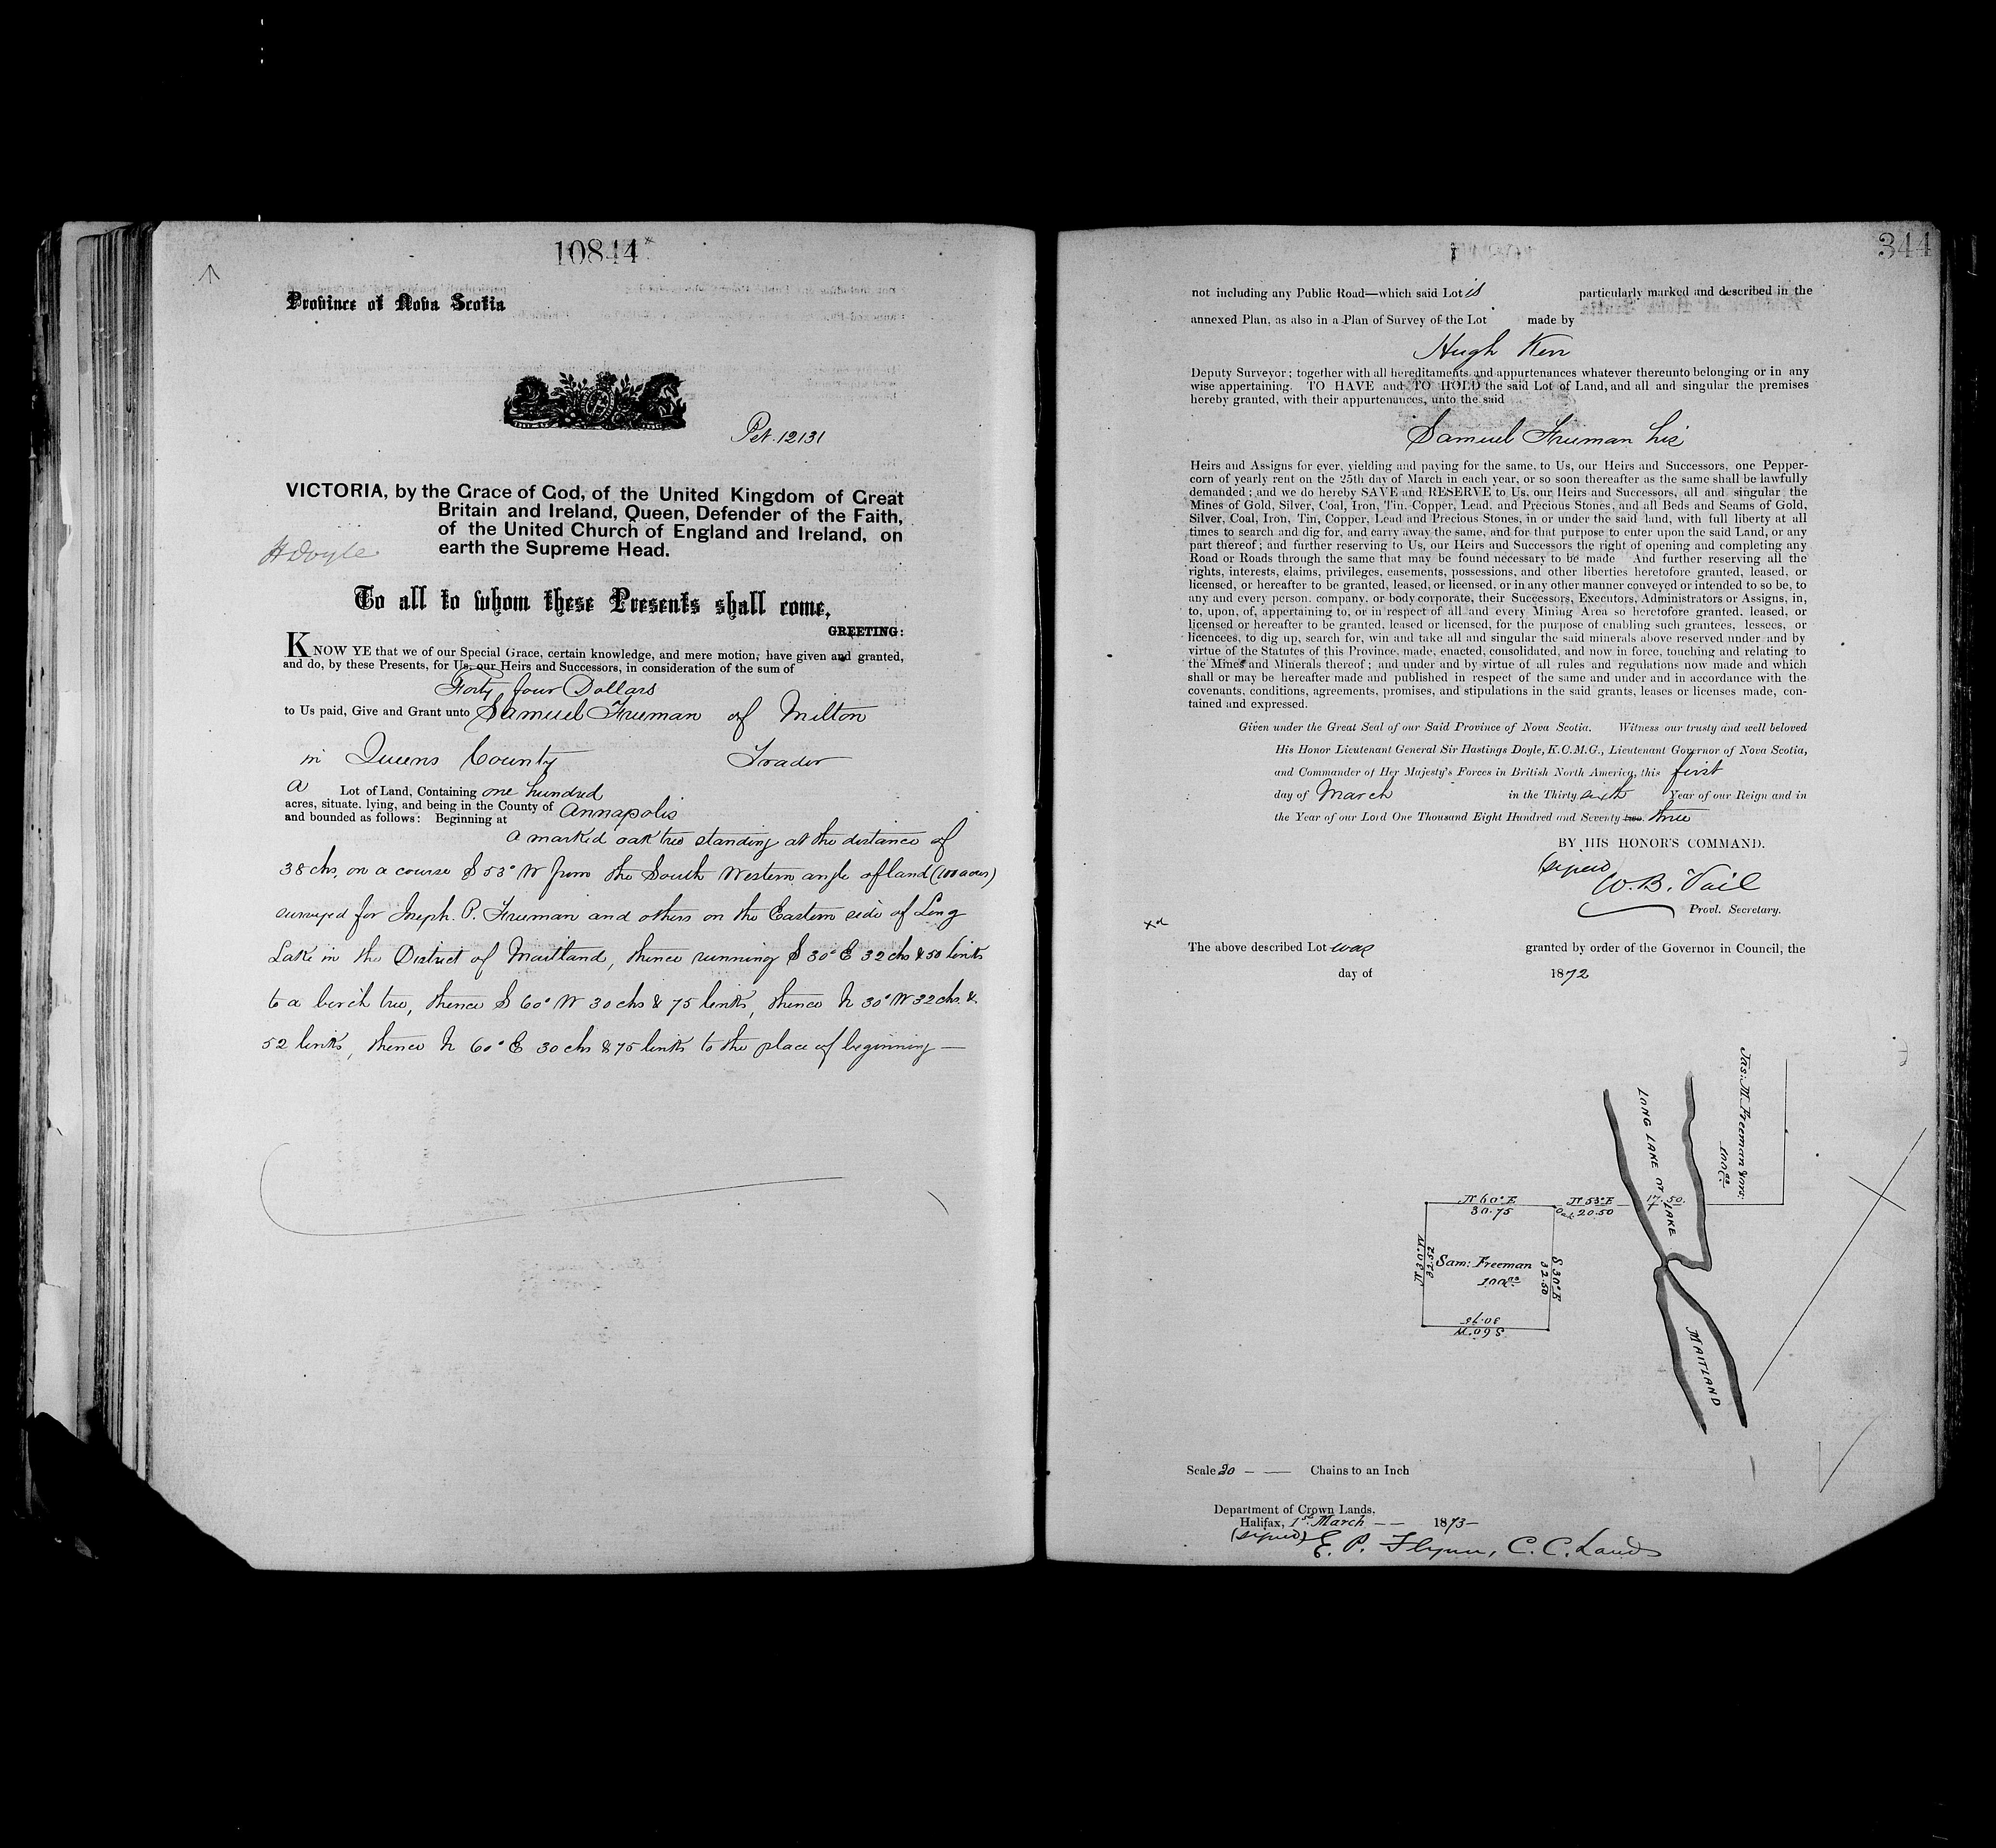 10844
Province of Nova Scotia
Pet. 12131
VICTORIA, by the Grace of God, of the United Kingdom of Great
Britain and Ireland, Queen, Defender of the Faith,
of the United Church of England and Ireland, on
earth the Supreme Head.
H Doyle
To all to whom these Presents shall come,
GREETING:
KNOW YE that we of our Special Grace, certain knowledge, and mere motion, have given and granted,
and do, by these Presents, for Us, our Heirs and Successors, in consideration of the sum of
Forty four Dollars
to Us paid, Give and Grant unto Samuel Freeman of Milton
in Queens County Trader
a Lot of Land, Containing one hundred
acres, situate, lying, and being in the County of Annapolis
and bounded as follows: Beginning at
a marked oak tree standing at the distance of
38 chs. on a course S 53° W from the South Western angle of land (100 acres)
surveyed for Joseph. P. Freeman and others on the Eastern side of Long
Lake in the District of Maitland, thence running S 30° E 32 chs & 50 links
to a birch tree, thence S 60° W 30 chs & 75 links, thence N 30° W 32 chs. &
52 links, thence N 60° E 30 chs & 75 links to the place of beginning —
344
not including any Public Road—which said Lot is particularly marked and described in the
annexed Plan, as also in a Plan of Survey of the Lot made by
Hugh Kerr
Deputy Surveyor; together with all hereditaments and appurtenances whatever thereunto belonging or in any
wise appertaining. TO HAVE and TO HOLD the said Lot of Land, and all and singular the premises
hereby granted, with their appurtenances, unto the said
Samuel Freeman his
Heirs and Assigns for ever, yielding and paying for the same, to Us, our Heirs and Successors, one Pepper-
corn of yearly rent on the 25th day of March in each year, or so soon thereafter as the same shall be lawfully
demanded; and we do hereby SAVE and RESERVE to Us, our Heirs and Successors, all and singular the
Mines of Gold, Silver, Coal, Iron, Tin, Copper, Lead, and Precious Stones, and all Beds and Seams of Gold,
Silver, Coal, Iron, Tin, Copper, Lead and Precious Stones, in or under the said land, with full liberty at all
times to search and dig for, and carry away the same, and for that purpose to enter upon the said Land, or any
part thereof; and further reserving to Us, our Heirs and Successors the right of opening and completing any
Road or Roads through the same that may be found necessary to be made And further reserving all the
rights, interests, claims, privileges, easements, possessions, and other liberties heretofore granted, leased, or
licensed, or hereafter to be granted, leased, or licensed, or in any other manner conveyed or intended to so be, to
any and every person, company, or body corporate, their Successors, Executors, Administrators or Assigns, in,
to, upon, of, appertaining to, or in respect of all and every Mining Area so heretofore granted, leased, or
licensed or hereafter to be granted, leased or licensed, for the purpose of enabling such grantees, lessees, or
licencees, to dig up, search for, win and take all and singular the said minerals above reserved under and by
virtue of the Statutes of this Province, made, enacted, consolidated, and now in force, touching and relating to
the Mines and Minerals thereof; and under and by virtue of all rules and regulations now made and which
shall or may be hereafter made and published in respect of the same and under and in accordance with the
covenants, conditions, agreements, promises, and stipulations in the said grants, leases or licenses made, con-
tained and expressed.
Given under the Great Seal of our Said Province of Nova Scotia. Witness our trusty and well beloved
His Honor Lieutenant General Sir Hastings Doyle, K.C.M.G., Lieutenant Governor of Nova Scotia,
and Commander of Her Majesty's Forces in British North America, this first
day of March in the Thirty sixth Year of our Reign and in
the Year of our Lord One Thousand Eight Hundred and Seventy two. three
BY HIS HONOR'S COMMAND.
(signed)
W. B. Vail
Provl. Secretary.
xd
The above described Lot was granted by order of the Governor in Council, the
day of 1872
Jas: M. Freeman & ors:
100 as
LONG LAKE OT LAKE
MAITLAND
N 60° E
30.75
N 53° E
Oak 20.50
17.50.
N 30° W
32.52
Sam: Freeman
100 as
S 30° E
32.50
S 60° W
30.75
Scale 20 — — Chains to an Inch
Department of Crown Lands,
Halifax, 1st March — — 1873 —
(signed) E. P. Flynn, C. C. Lands